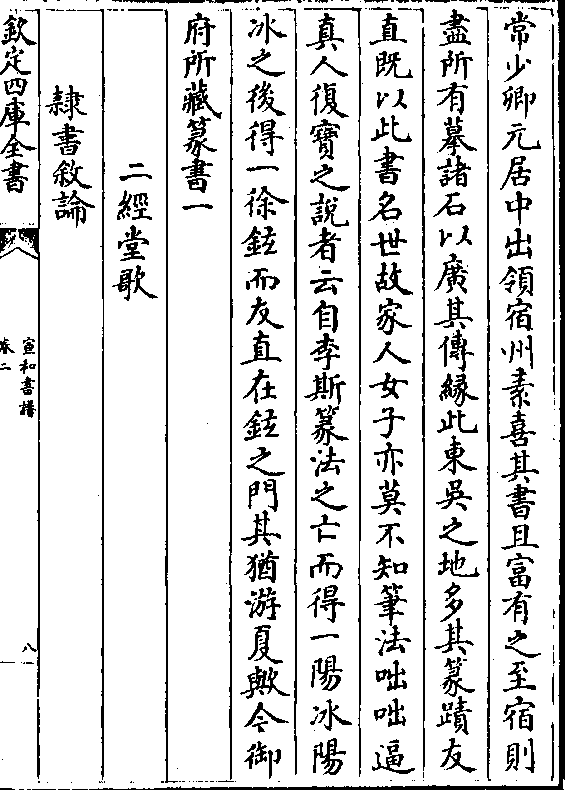 常少卿元居中出領宿州素喜其書且富有之至宿則
盡所有摹諸石以廣其傳緣此東吳之地多其篆蹟友
直既以此書名世故家人女子亦莫不知筆法咄咄逼
真人復寶之說者云自李斯篆法之亡而得一陽冰陽
冰之後得一徐鉉而友直在鉉之門其猶游夏歟今御
府所藏篆書一
二經堂歌
隸書敘論
欽定四庫全書
宣和書譜
卷二
八